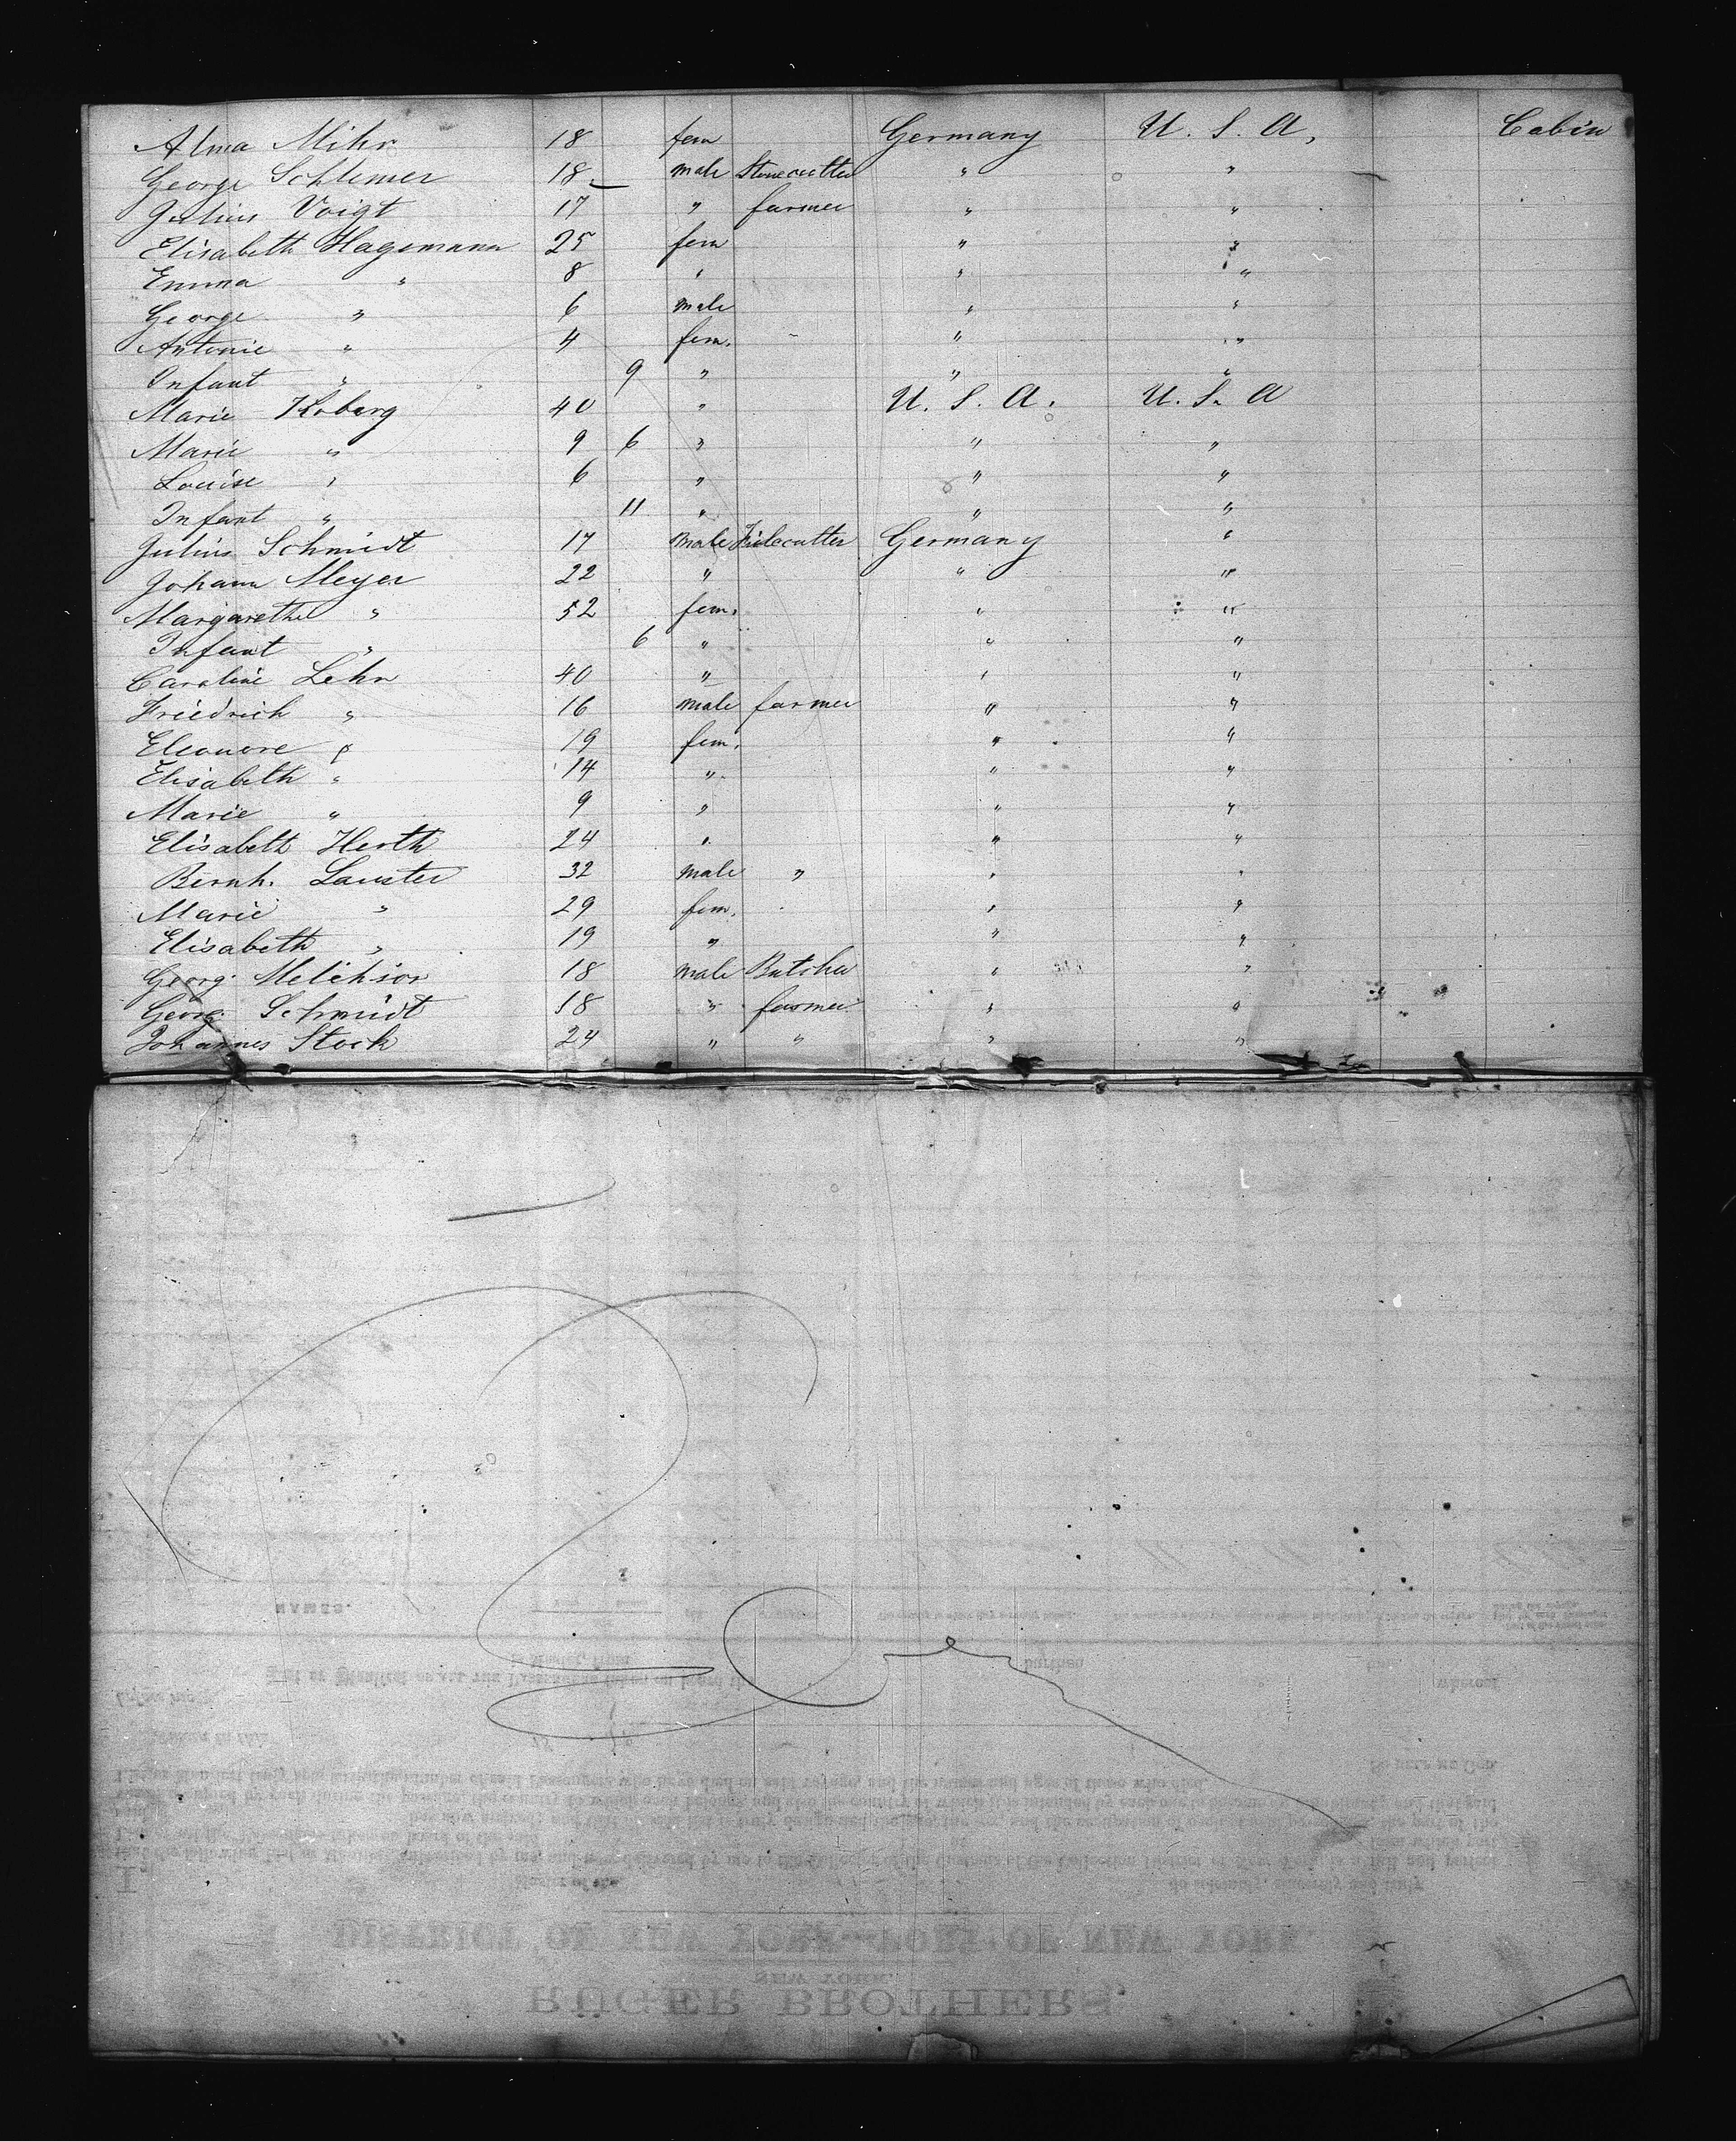 Alma Mihr 18 fem Germany U. S. A. Cabin
George Schlemer 18 male Stonecutter " "
Julius Voigt 17 " farmer " "
Elisabeth Hagemann 25 fem " "
Emma " 8 " " "
George " 6 male " "
Antonie " 4 fem. " "
Infant " 9 " " "
Marie Koberg 40 " U. S. A. U. S. A
Marie " 9 6 " " "
Louise " 6 " " "
Infant " 11 " " "
Julius Schmidt 17 male Filecutter Germany "
Johann Meyer 22 " " "
Margarethe " 52 fem. " "
Infant " 6 " " "
Caroline Lehn 40 " " "
Friedrich " 16 male farmer " "
Eleonore " 19 fem. " "
Elisabeth " 14 " " "
Marie " 9 " " "
Elisabeth Herth 24 " " "
Bernh. Lauster 32 male " " "
Marie " 29 fem. " "
Elisabeth " 19 " " "
Georg Melchior 18 male Butcher " "
Georg Schmidt 18 " farmer " "
Johannes Stock 24 " " " "
NAMES.
DISTRICT OF NEW YORK—PORT OF NEW YORK
NEW YORK.
RÜGER BROTHERS.